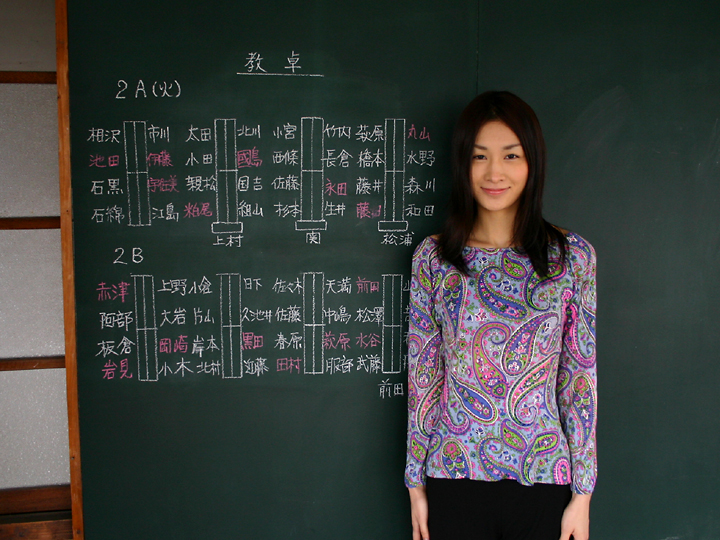 教卓
2A(火)
相沢 市川 太田 北川 小宮 竹内 萩原 丸山
池田 伊藤 小田 國島 西條 長倉 橋本 水野
石黒 宇佐美 親松 国吉 佐藤 永田 藤井 森川
石綿 江島 粕尾 組山 杉本 生井 和田
上村 関 松浦
2B
赤津 上野 小倉 日下 佐々木 天満 前田
阿部 大岩 片山 久池井 佐藤 中嶋 松澤
板倉 岡崎 岸本 黒田 春原 萩原 水谷
岩見 小木 北村 近藤 田村 服部 武藤
前田